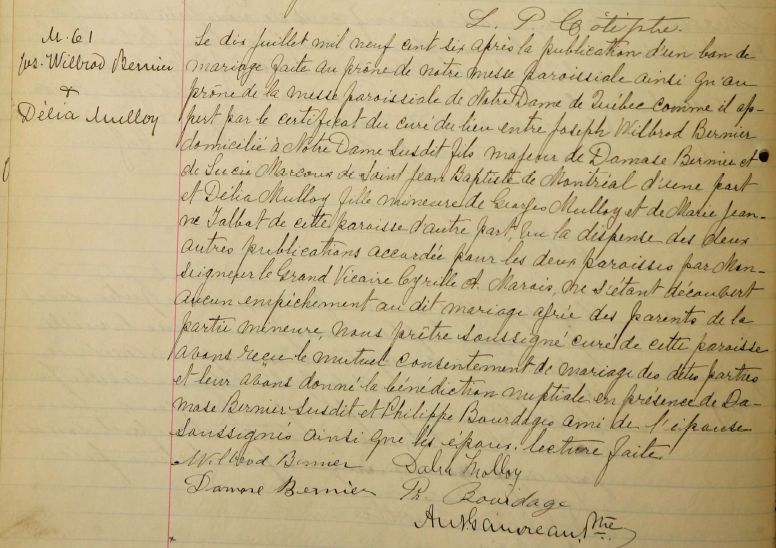 L. P. Côté ptre.
M. 61
Jos. Wilbrod Bernier
+
Délia Mulloy
Le dix juillet mil neuf cent six après la publication d'un ban de
mariage faite au prône de notre messe paroissiale ainsi qu'au
prône de la messe paroissiale de Notre Dame de Québec comme il ap-
pert par le certificat du curé du lieu entre Joseph Wilbrod Bernier
domicilié à Notre Dame susdit fils majeur de Damase Bernier et
de Lucie Marcoux de Saint Jean Baptiste de Montréal d'une part
et Délia Mulloy fille mineure de Georges Mulloy et de Marie Jean-
ne Talbot de cette paroisse d'autre part, vu la dispense des deux
autres publications accordée pour les deux paroisses par Mon-
seigneur le Grand Vicaire Cyrille A. Marois, ne s'étant découvert
aucun empêchement au dit mariage des parents de la
partie mineure, nous prêtre soussigné curé de cette paroisse
avons reçu le mutuel consentement de mariage des dites parties
et leur avons donné la bénédiction nuptiale en présence de Da-
mase Bernier susdit et Philippe Bourdages ami de l'épouse
soussignés ainsi que les époux. lecture faite
Wilbrod Bernier Delia Molloy
Damase Bernier Ph Bourdage
Ant Gauvreau Ptre